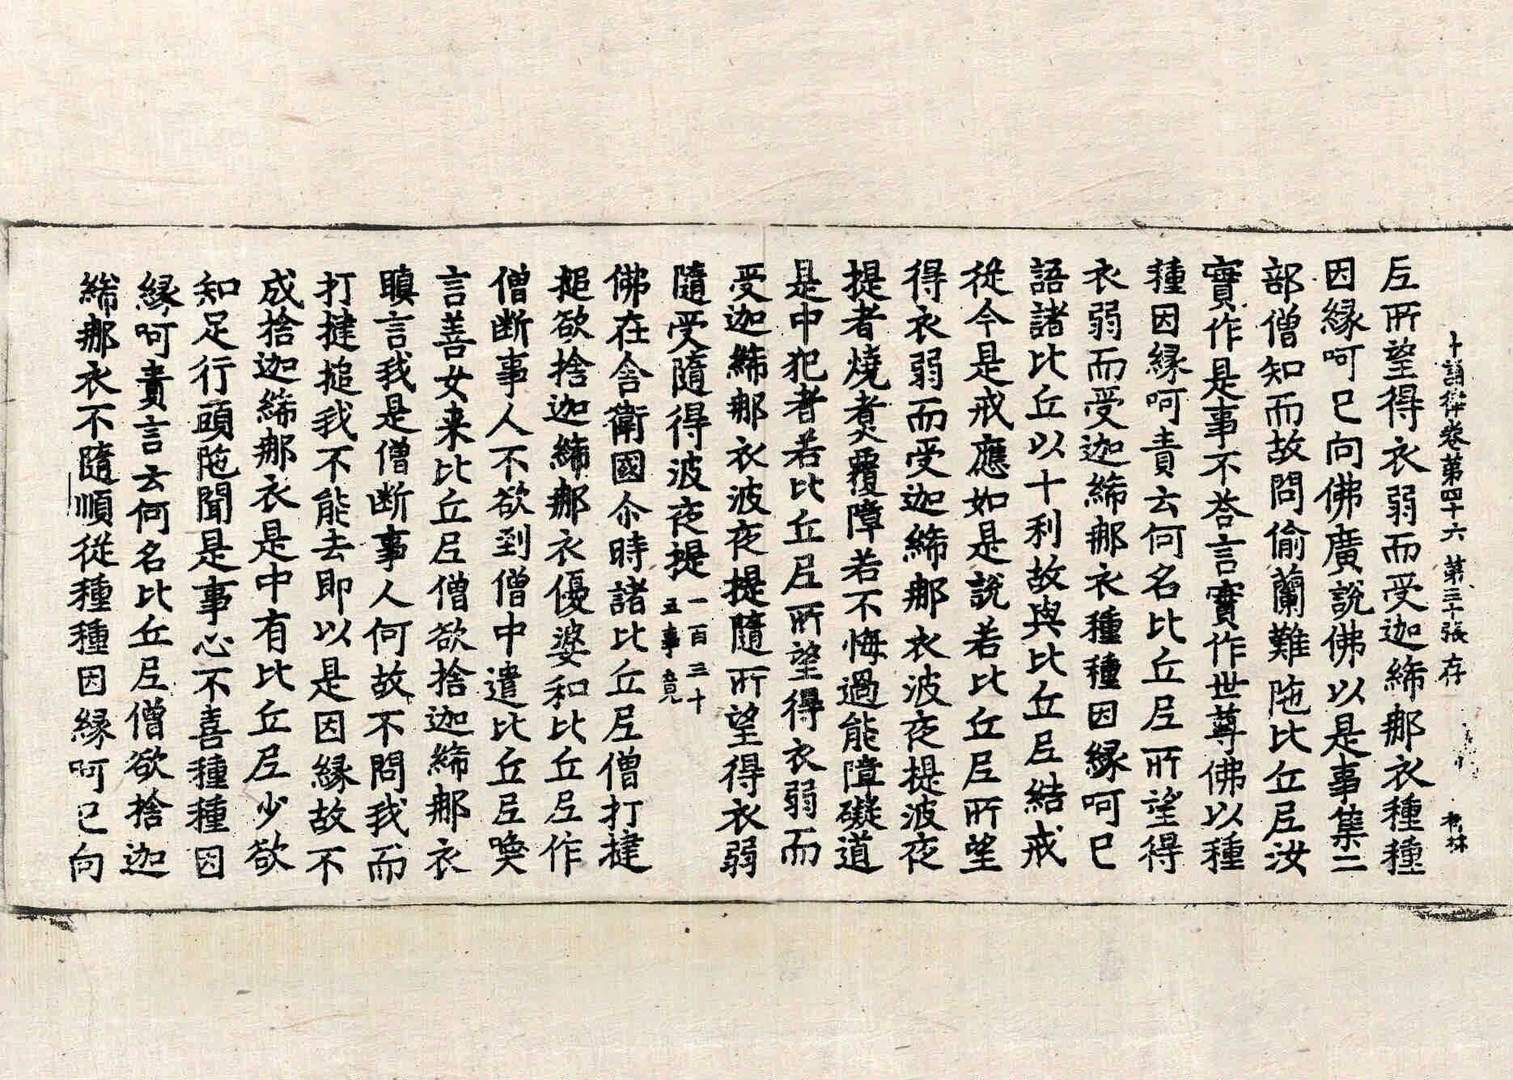 十誦律卷第四十六 第三十張 存 林
𡰱所望得衣弱而受迦絺那衣種種
因緣呵已向佛廣說佛以是事集二
部僧知而故問偷蘭難陁比丘𡰱汝
實作是事不荅言實作世尊佛以種
種因緣呵責云何名比丘𡰱所望得
衣弱而受迦絺那衣種種因緣呵已
語諸比丘以十利故與比丘𡰱結戒
從今是戒應如是說若比丘𡰱所望
得衣弱而受迦絺那衣波夜提波夜
提者燒煑覆障若不悔過能障礙道
是中犯者若比丘𡰱所望得衣弱而
受迦絺那衣波夜提隨所望得衣弱
隨受隨得波夜提一百三十五事竟
佛在舍衛國尒時諸比丘𡰱僧打揵
搥欲捨迦絺那衣優婆和比丘𡰱作
僧断事人不欲到僧中遣比丘𡰱喚
言善女来比丘𡰱僧欲捨迦絺那衣
瞋言我是僧断事人何故不問我而
打揵搥我不能去即以是因緣故不
成捨迦絺那衣是中有比丘𡰱少欲
知足行頭陁聞是事心不喜種種因
緣呵責言云何名比丘𡰱僧欲捨迦
絺那衣不隨順從種種因緣呵已向